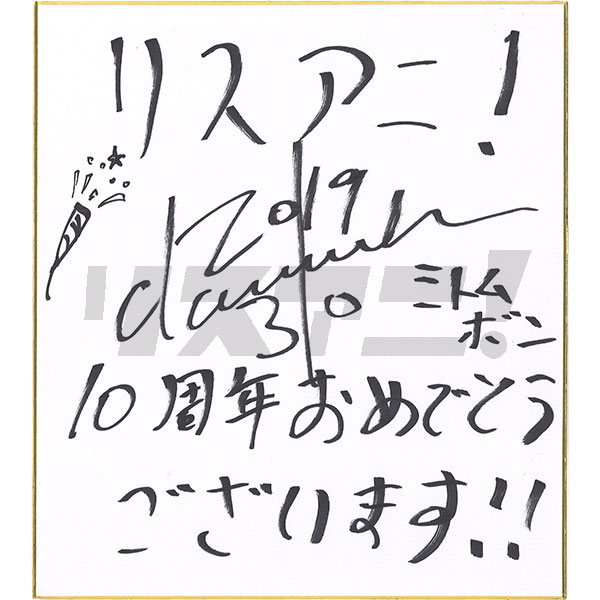 リスアニ!
2019
30
ミトム
ボン
リスアニ!
10周年おめでとう
ございます!!